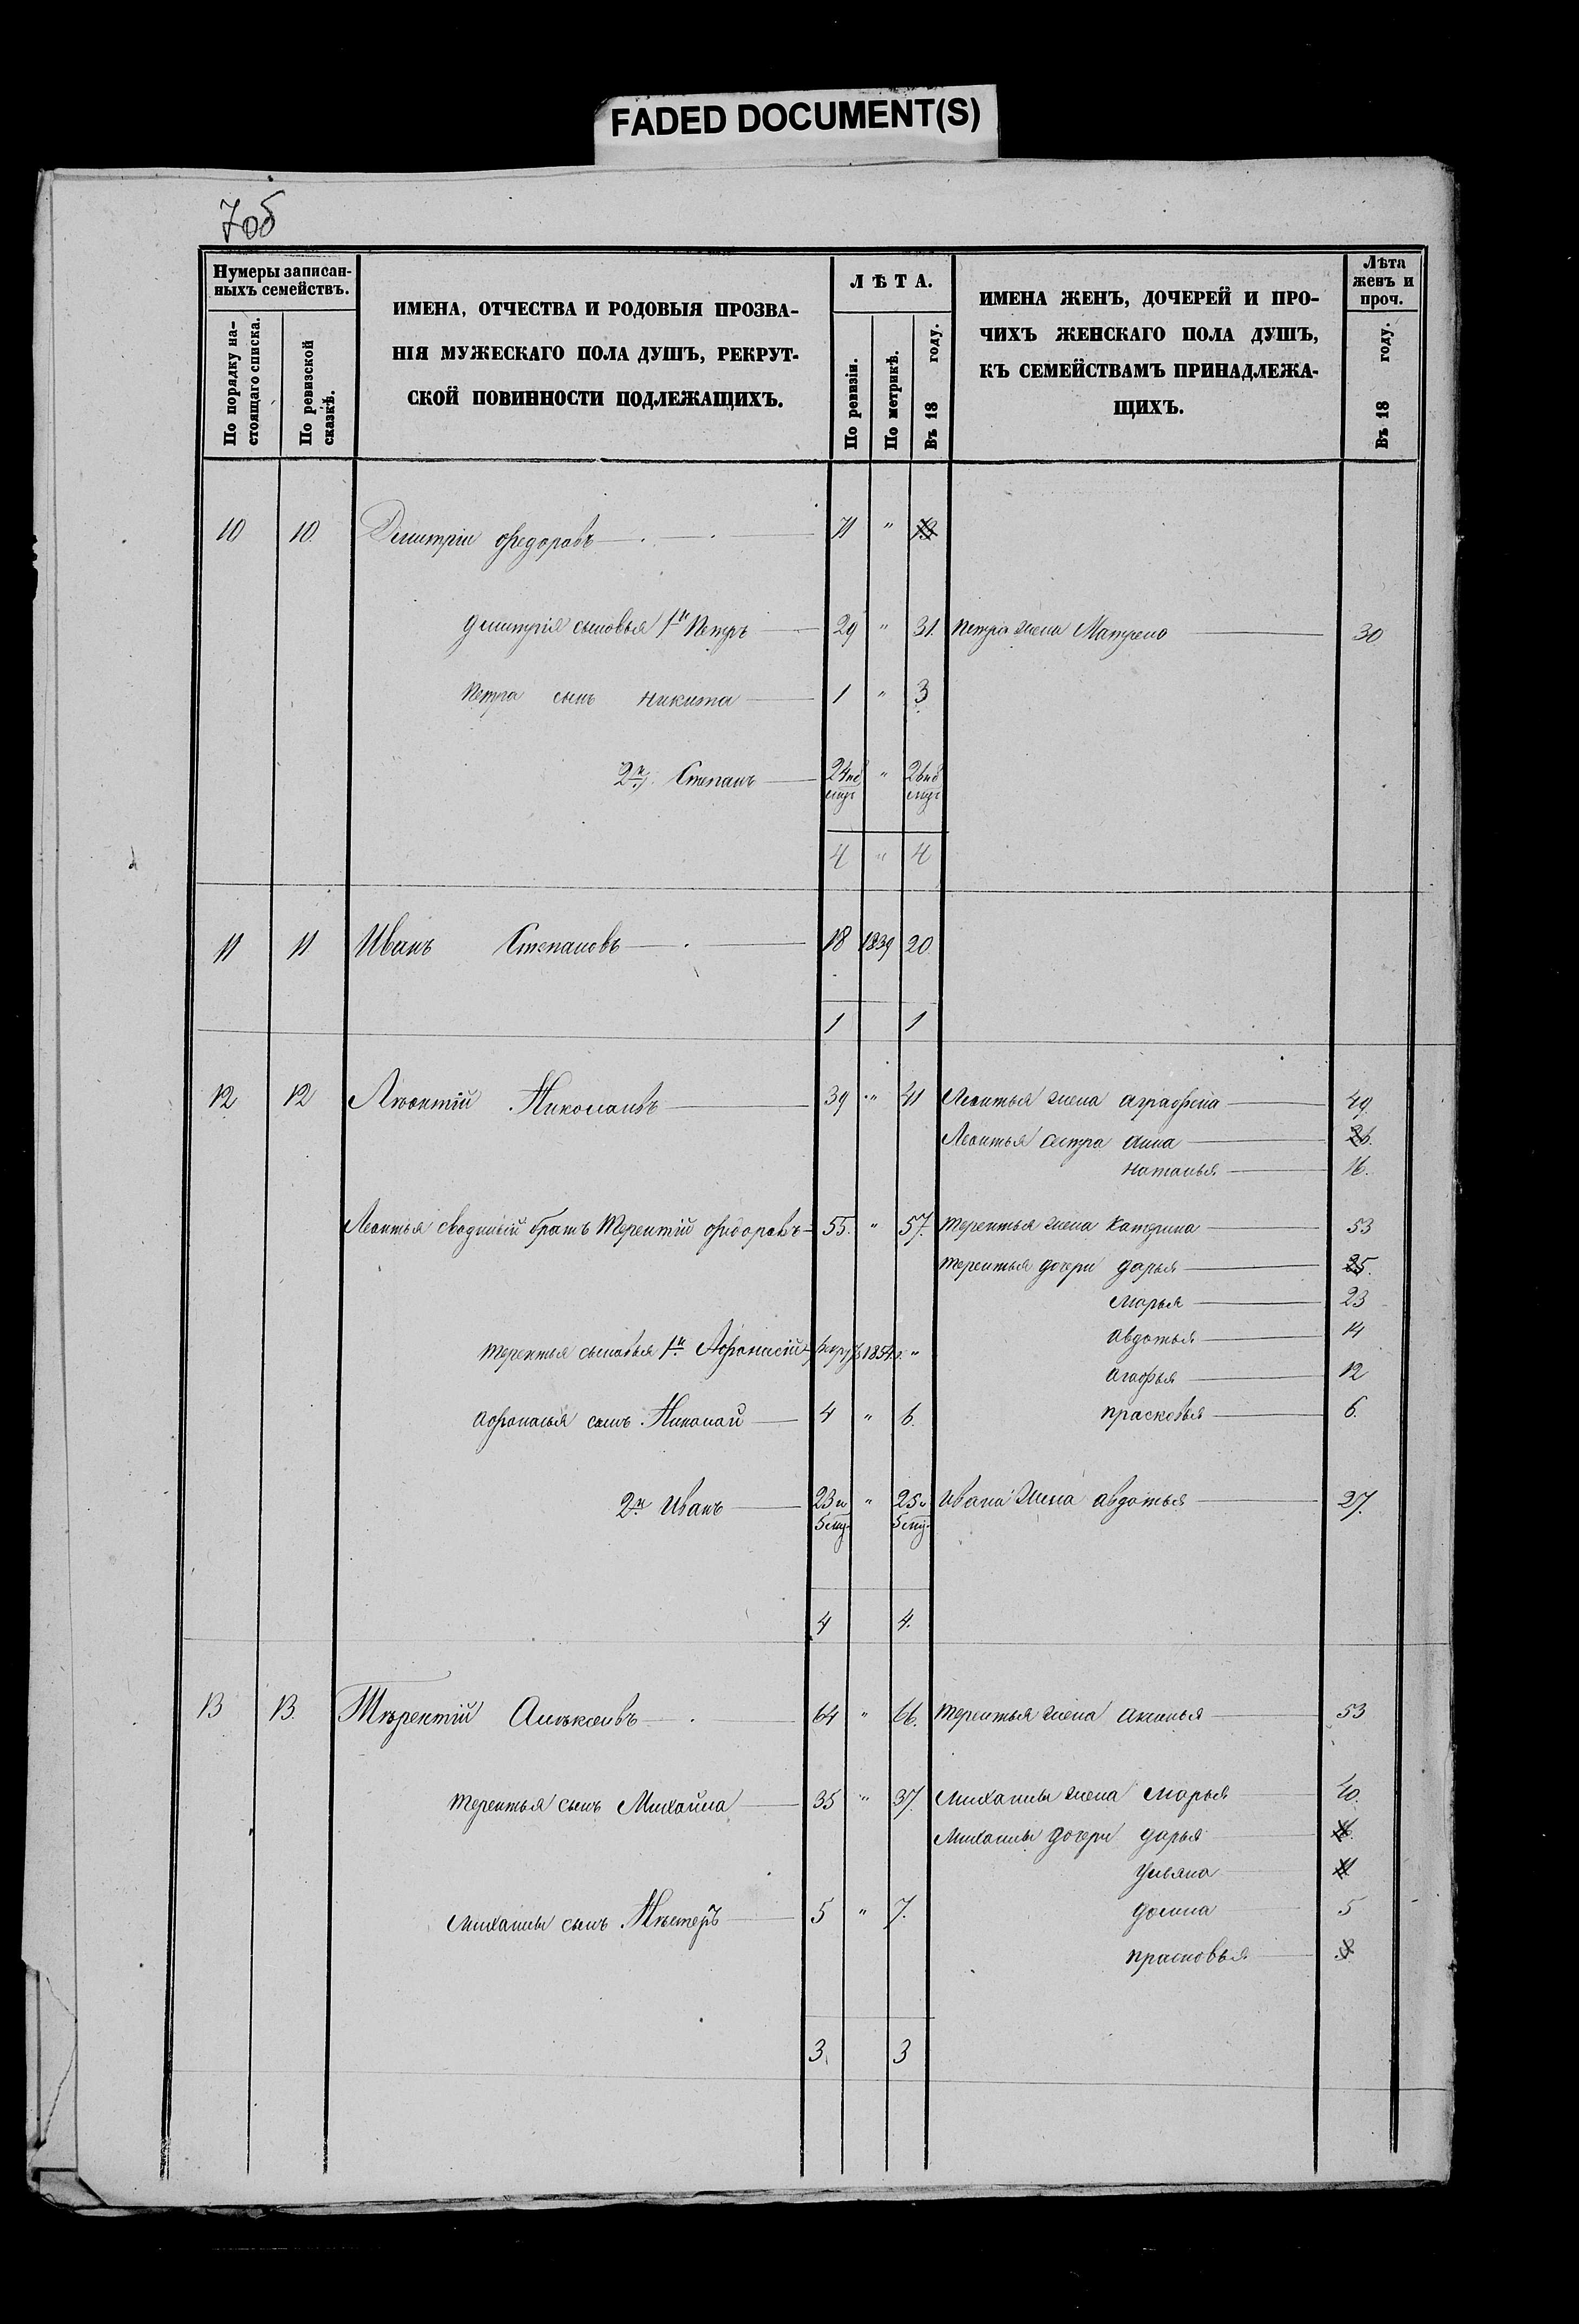 FADED DOCUMENT(S)
7об
Нумеры записан-
ныхъ семействъ.
По порядку на-
стоящаго списка.
По ревизской
сказкѣ.
ИМЕНА, ОТЧЕСТВА И РОДОВЫЯ ПРОЗВА-
НІЯ МУЖЕСКАГО ПОЛА ДУШЪ, РЕКРУТ-
СКОЙ ПОВИННОСТИ ПОДЛЕЖАЩИХЪ.
ЛѢТА.
По ревизіи.
По метрикѣ.
Въ 18 году.
ИМЕНА ЖЕНЪ, ДОЧЕРЕЙ И ПРО-
ЧИХЪ ЖЕНСКАГО ПОЛА ДУШЪ,
КЪ СЕМЕЙСТВАМЪ ПРИНАДЛЕЖА-
ЩИХЪ.
Лѣта
женъ и
проч.
Въ 18 году.
10 10. Дмитріи Федоравъ 71 "
Дмитрія сыновья 1й Петръ 29 " 31. Петра жена Матрена 30
Петра сынъ Никита 1 " 3
2й Степанъ 24 " 26
4 " 4
11 11 Иванъ Степановъ 18 1839 20.
1 1
12 12 Лѣонтій Николаивъ 39 " 41 Леонтья жена аграфена 49.
Леонтья сестра анна
наталья 16.
Леонтья сводный братъ Терентій Фидоравъ 55. " 57. Терентья жена Катерина 53
Терентья дочери дарья 25.
марья 23
Терентья сыновья 1й Афонасій рекрутъ 1854 г. " авдотья 14
агафья 12
афонасья сынъ Николай 4 " 6. прасковья 6.
2й Иванъ 23 и " 25 и Ивана жена авдотья 27.
5 мцъ 5 мцъ
4 4.
13 13. Тѣрентій Алѣксѣивъ 64 " 66. Терентья жена аксинья 53
Терентья сынъ Михайла 35 " 37. Михаилы жена марья 40.
Михаилы дочери дарья
Ульяна
Михаилы сынъ Нѣстеръ 5 " 7. домна 5
прасковья
3. 3